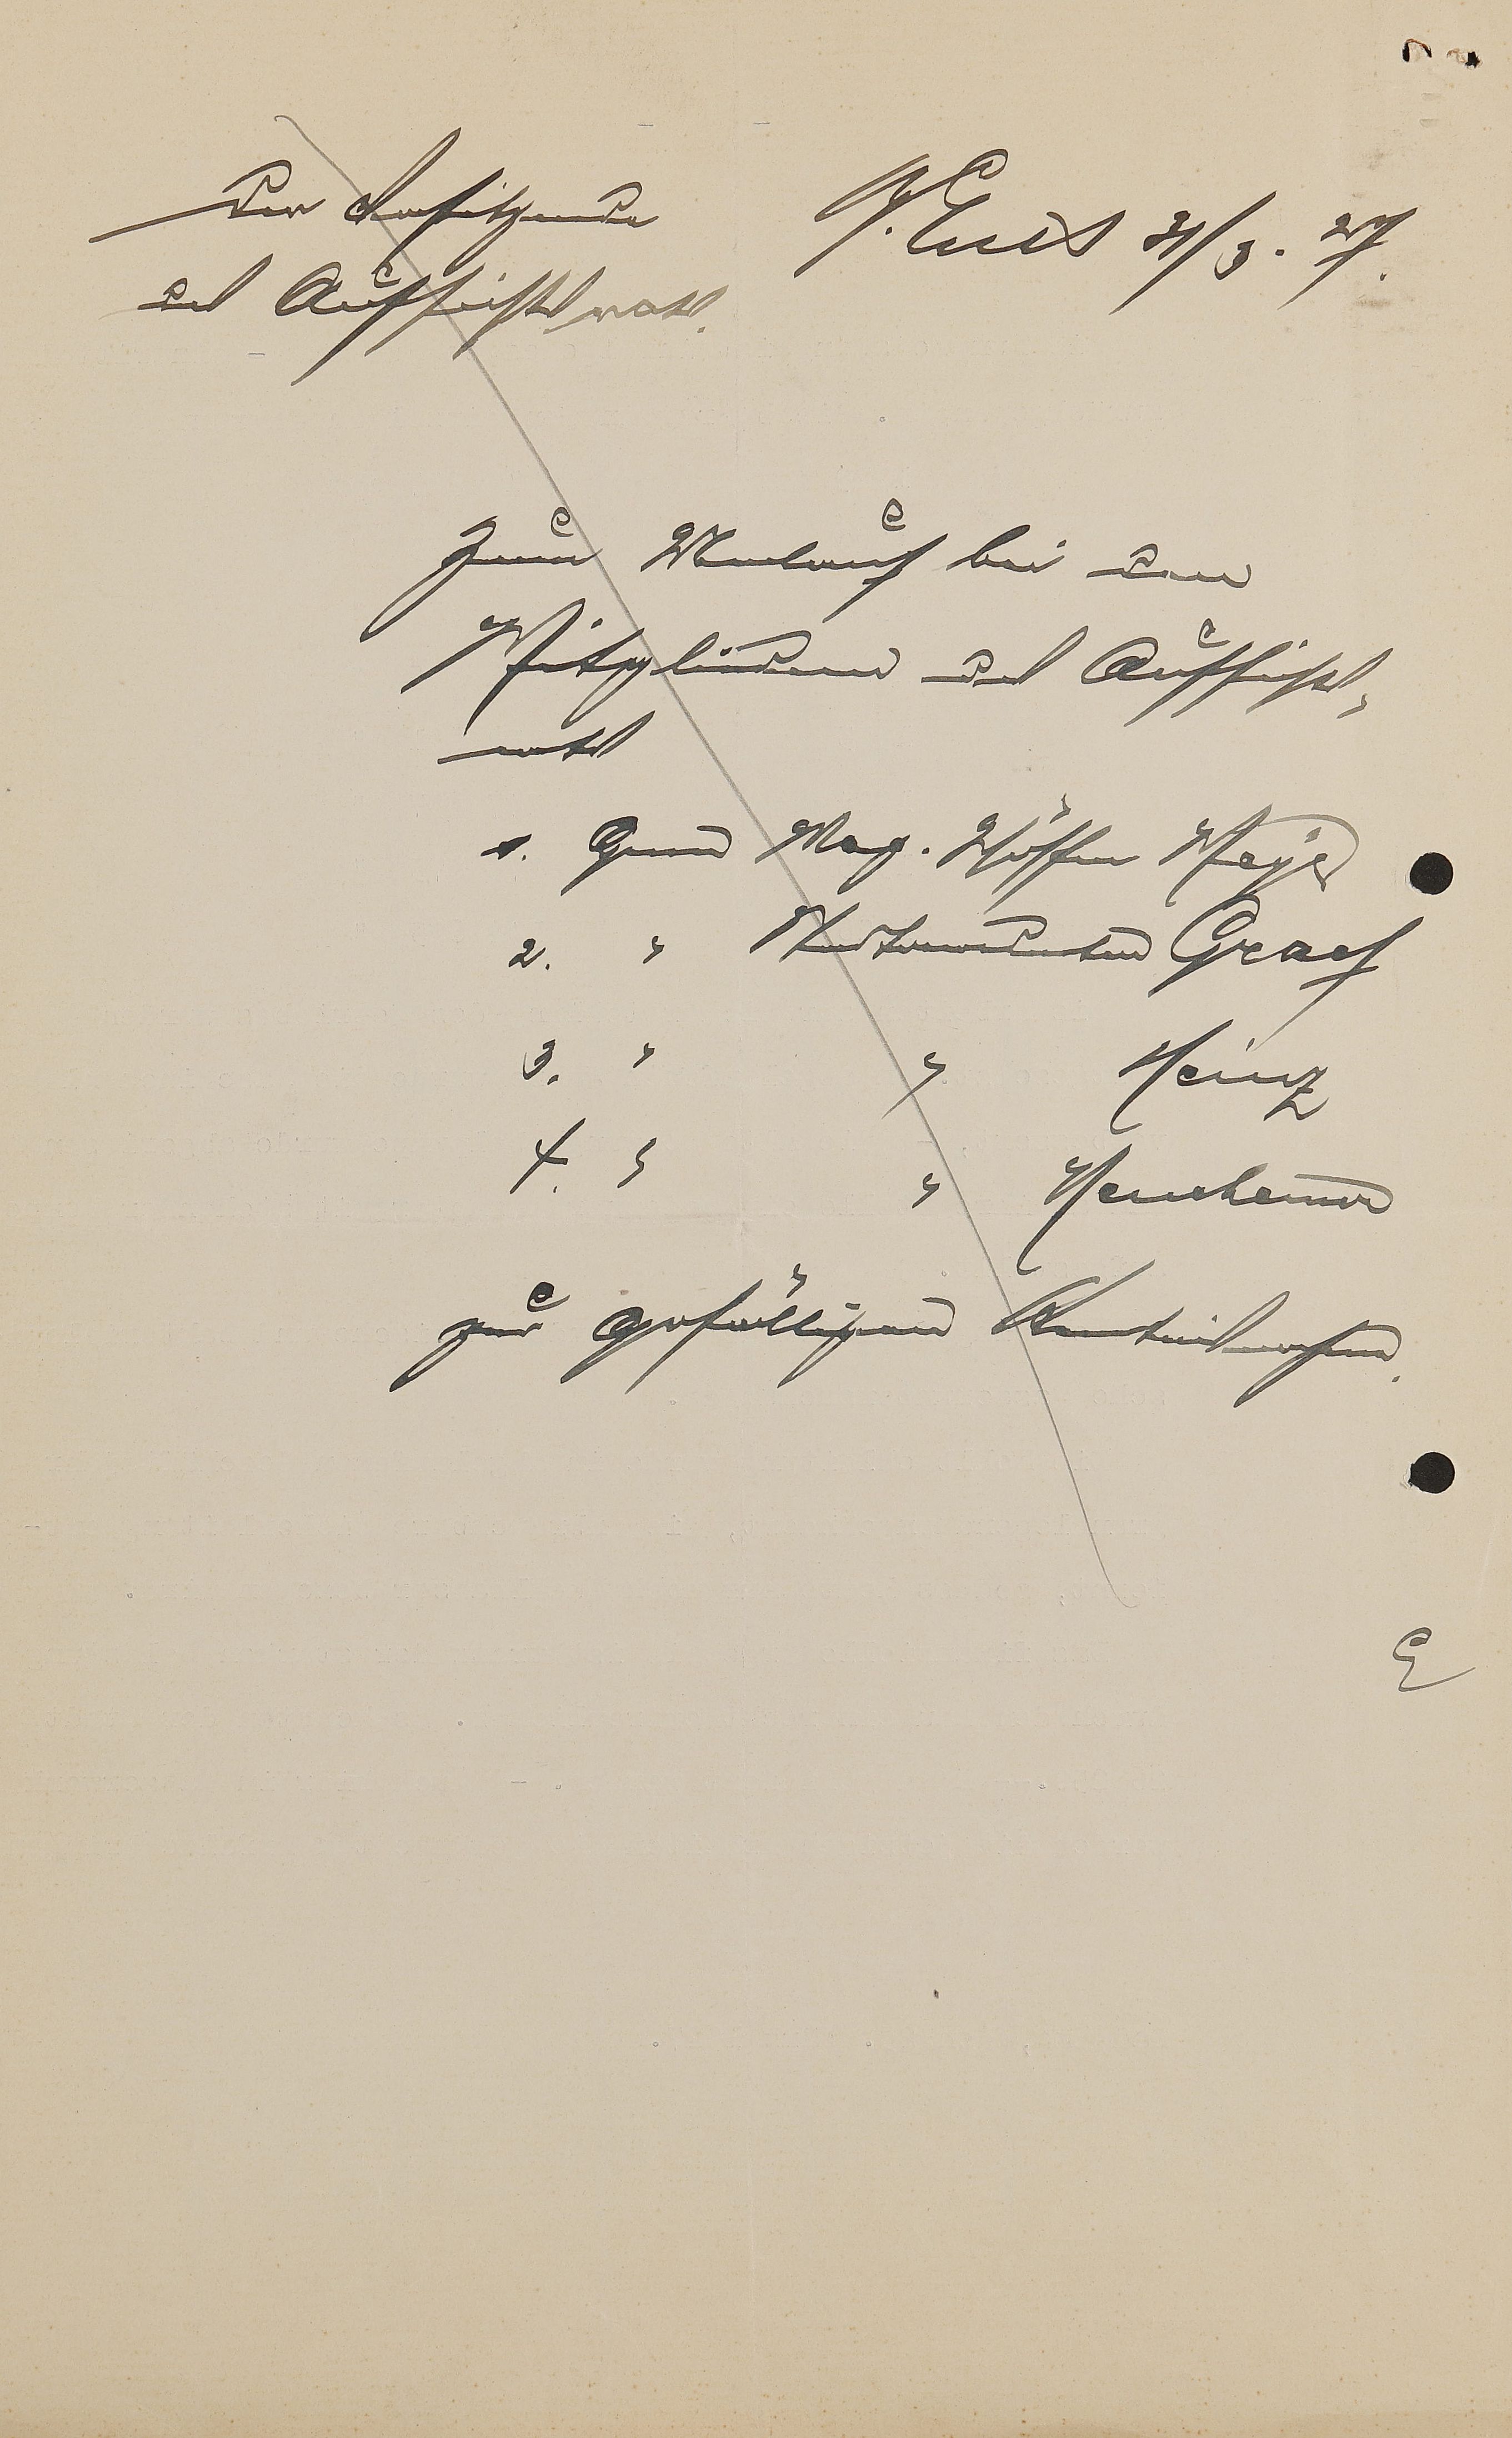 Der Vorsitzende
des Aufsichtsrats.
B. Ems 31/3. 27.
Zum Umlauf bei den
Mitgliedern des Aufsichts-
rats
1. Herrn Mag. Schöffen Meyer
2. " Stadtverordneten Graef
3. " " Heinz
4. " "
zur gefälligen Kenntnisnahme.